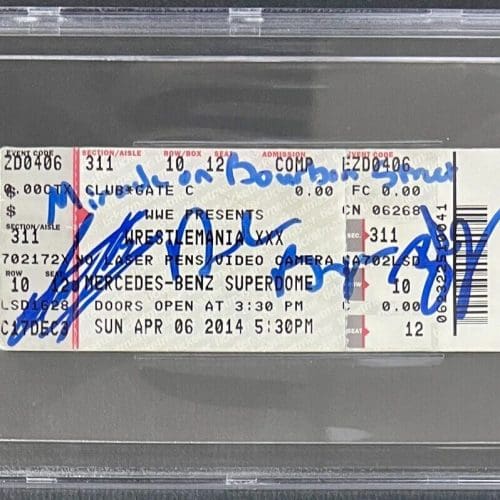 EVENT CODE SECTION/AISLE ROW/BOX SEAT ADMISSION EVENT CODE
ZD0406 311 10 12 COMP EZD0406
0.00 CLUB*GATE C 0.00 FC 0.00
Miracle on Bourbon Street
$ WWE PRESENTS CN 06268
SECTION/AISLE
311 WRESTLEMANIA XXX SEC. 311
702172X NO LASER PENS/VIDEO CAMERA SA702LSD
ROW SEAT
10 12 MERCEDES-BENZ SUPERDOME 10
LSD1628 DOORS OPEN AT 3:30 PM C 0.00
C17DEC3 SUN APR 06 2014 5:30PM SEAT 12